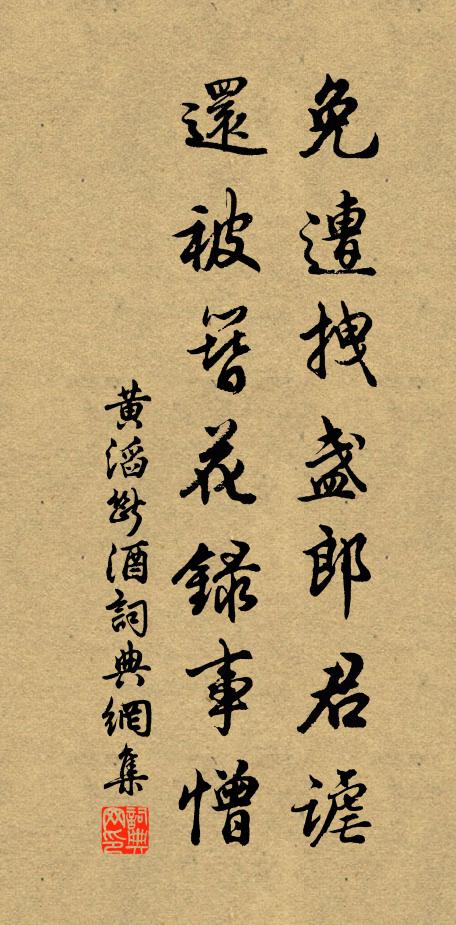 免遭拽盞郎君謔
還被簪花錄事憎
黃滔斷酒詞典網集
詞典网印